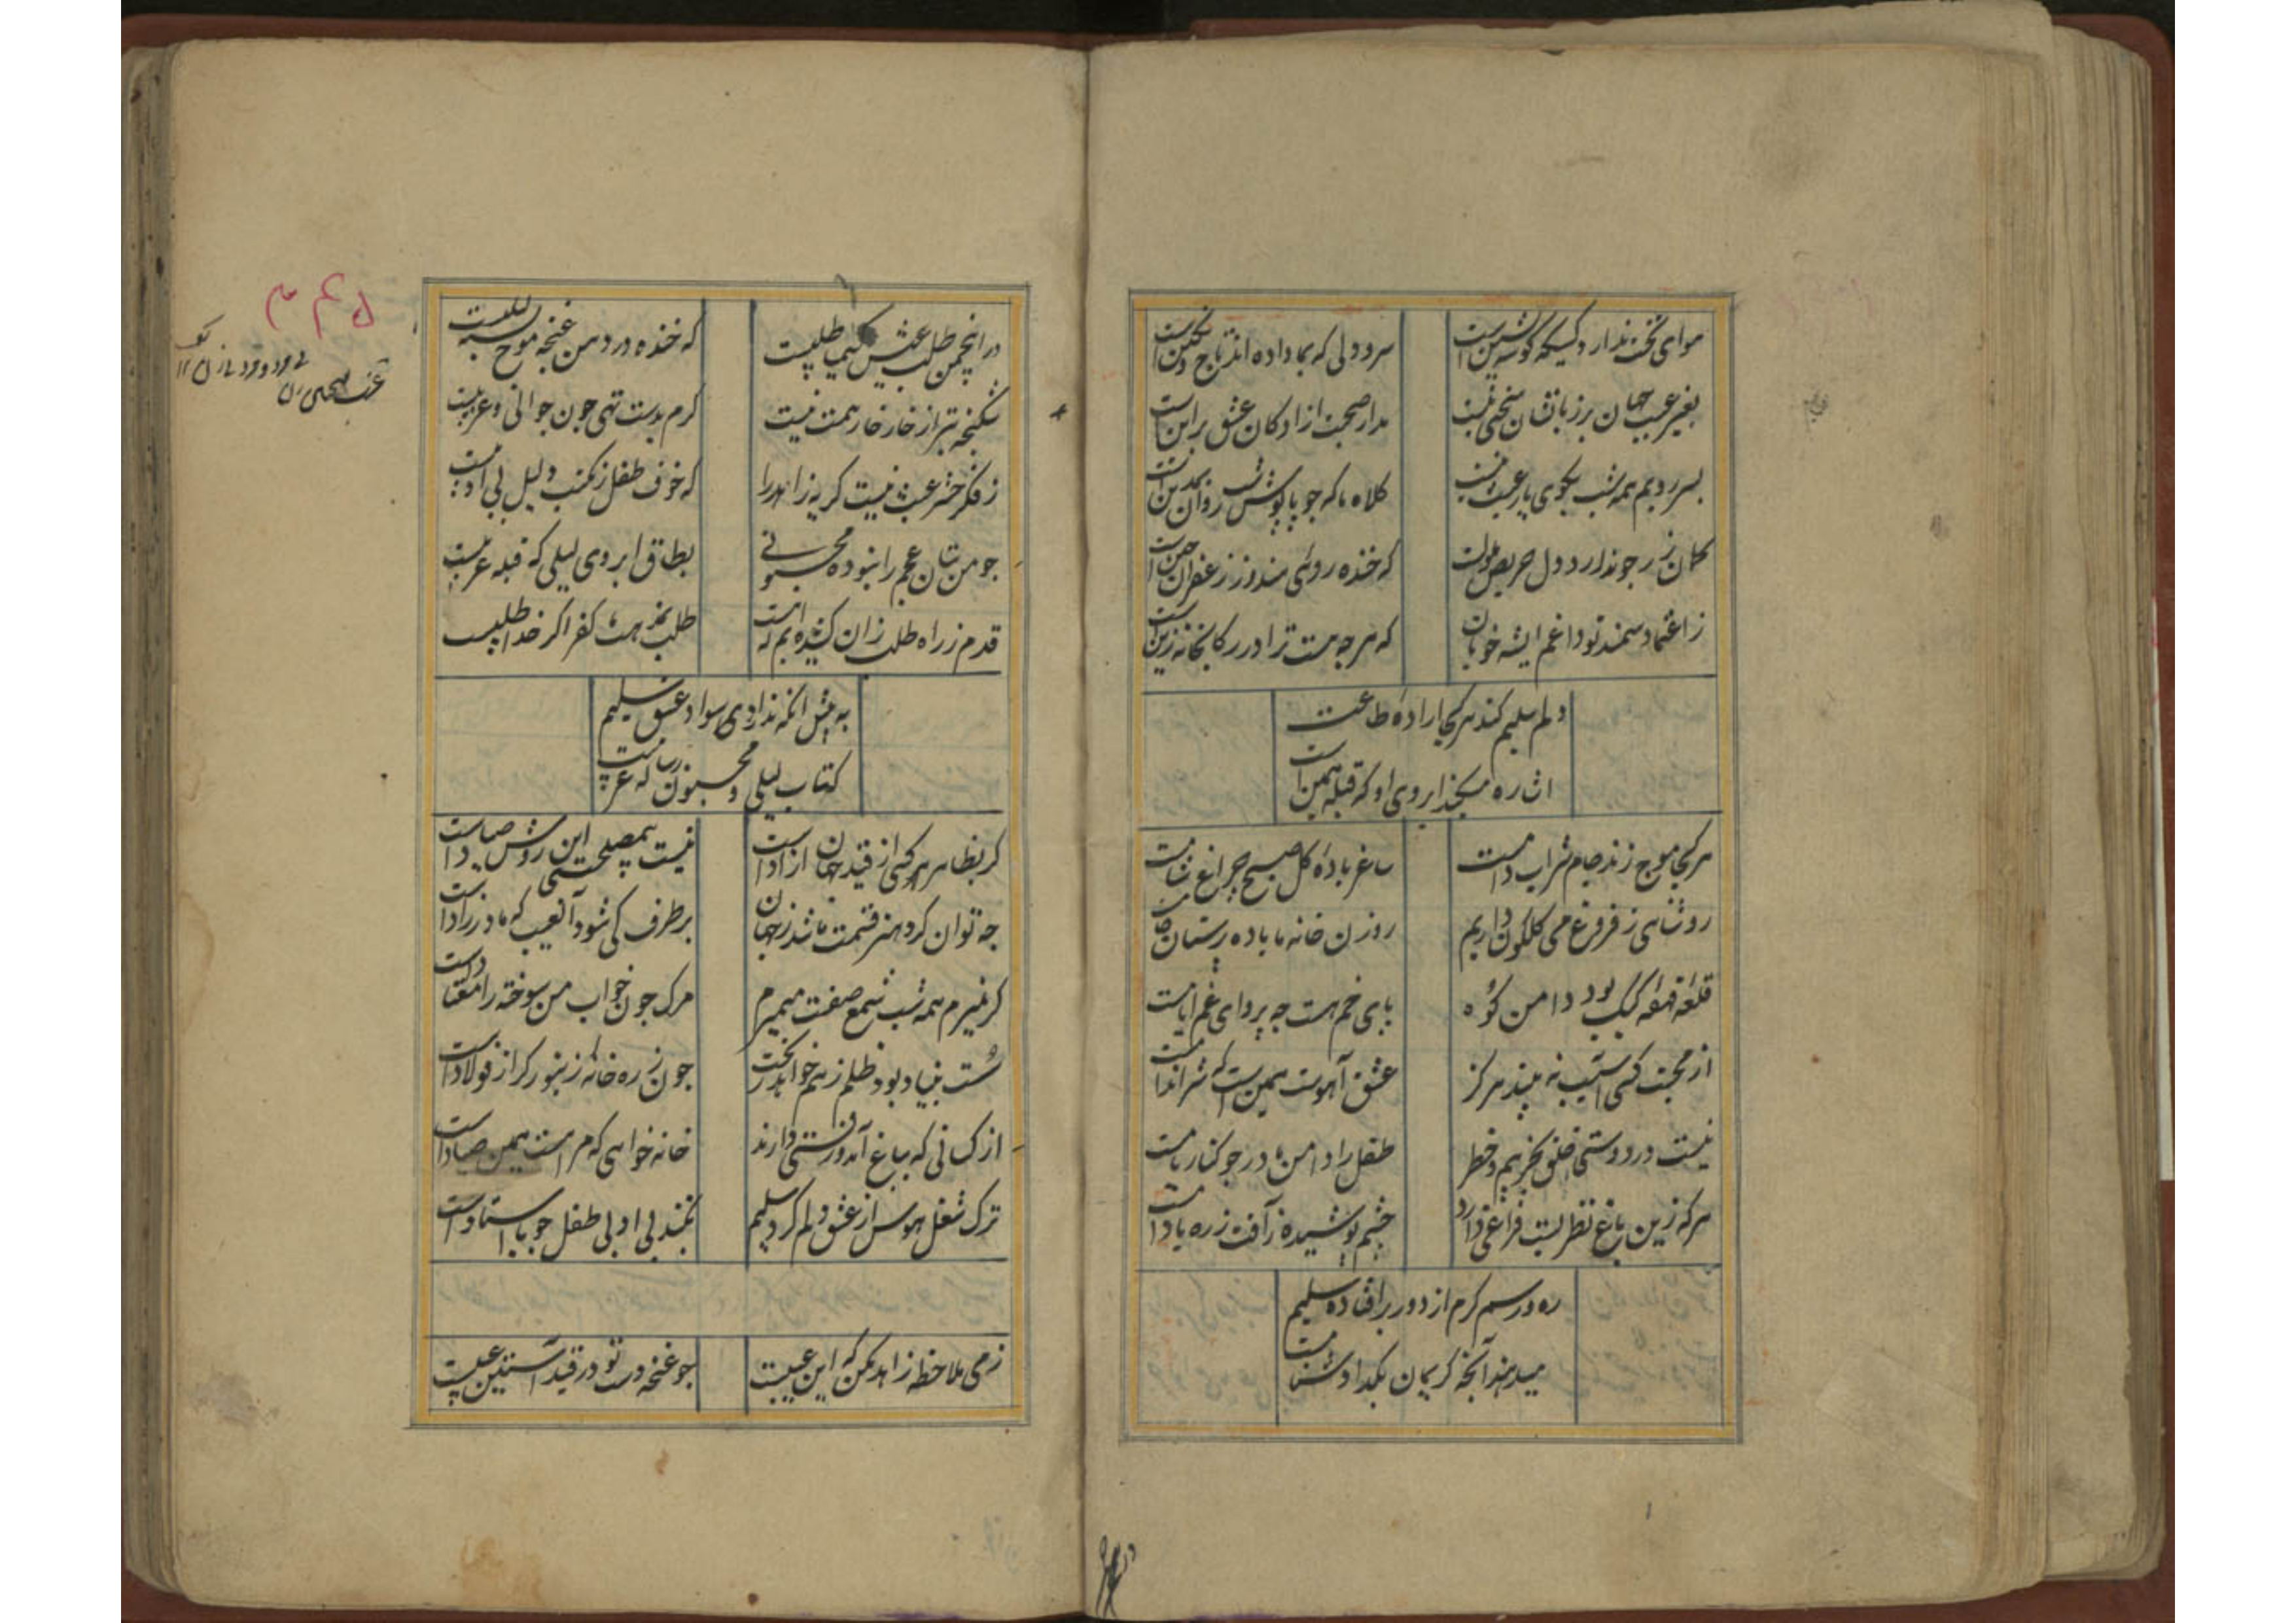 هوای تخت ندارد کسیکه گوشه نشین است
سر و دلی که بما داده اند تاج و نگین است
بغیر عیب جهان بر زبانشان سخنی نیست
مدار صحبت ازادکان عشق براین است
بسر رویم همه شب بکوی یار عجب نیست
کلاه ما که جو پاپوش شب روان نمدین است
کمان زر جو ندارد دل حریص ملولست
که خنده روئی هندو ز زعفران جبین است
ز اعتماد سمند تو داغم ایشه خوبان
که هر جه هست ترا در رکابخانه زین است
دلم سلیم کند هر کجا اراده طاعت
اشاره میکند ابروی او که قبله همین است
هر کجا موج زند جام شراب دامست
ساغر باده کل صبح جراغ شامست
روشنای ز فروغ می کلکون داریم
روزن خانه ما باده پرستان جامست
قلعه قهقهه کبک بود دامن کوه
پای خم هست جه پروای غم ایامست
از محبت کسی آسیب نه بیند هرکز
عشق آهوست همین است که شیر اندامست
نیست در دوستی خلق بجز بیم و خطر
طفل را دامن ما در جو کنار بامست
هر که زین باغ نظر بست فراغی دارد
چشم پوشیده ز آفت زره بادامست
ره و رسم کرم از دور برافتاده سلیم
میدهند آنچه کریمان بکدا دشنامست
در انجمن
در انجمن طلب عیش کیمیا طلبیست
که خنده در دهن غنچه موج تشنه لبیست
شکنجه بتر از خار خار همت نیست
کرم بدست تهی جون جوانی و عزبیست
ز فکر حشر عبث نیست کریه زاهد را
که خوف طفل ز مکتب دلیل بی ادبیست
جو من بتان عجم را نبوده مجنونی
بطاق ابروی لیلی که قبله عربیست
قدم ز راه طلب زان کشیده ایم که
طلب بمذهب ما کفر اکر خدا طلبیست
به پیش انکه ندارد سواد عشق سلیم
کتاب لیلی و مجنون رساله عربیست
کر بظاهر هر کسی از قید جهان ازاد است
نیست بیمصلحتی این روش صیاد است
جه توان کرد هنر قسمت ما شد ز جهان
برطرف کی شود آنعیب که مادرزاد است
کر نمیرم همه شب شمع صفت میمیرم
مرک جون خواب من سوخته را معتاد است
سست بنیاد بود ظلم ز هم خواهد ریخت
جون زره خانه زنبور کر از فولاد است
از کسانی که بباغ آمد و رفتی دارند
خانه خواهی که مرا هست همین صیاد است
ترک شغل هوس از عشق دلم کرد سلیم
نکند بی ادبی طفل جو با استاد است
ز می ملاحظه زاهد مکن که این عیبست
جو غنچه دست تو در قید آستین عیبست